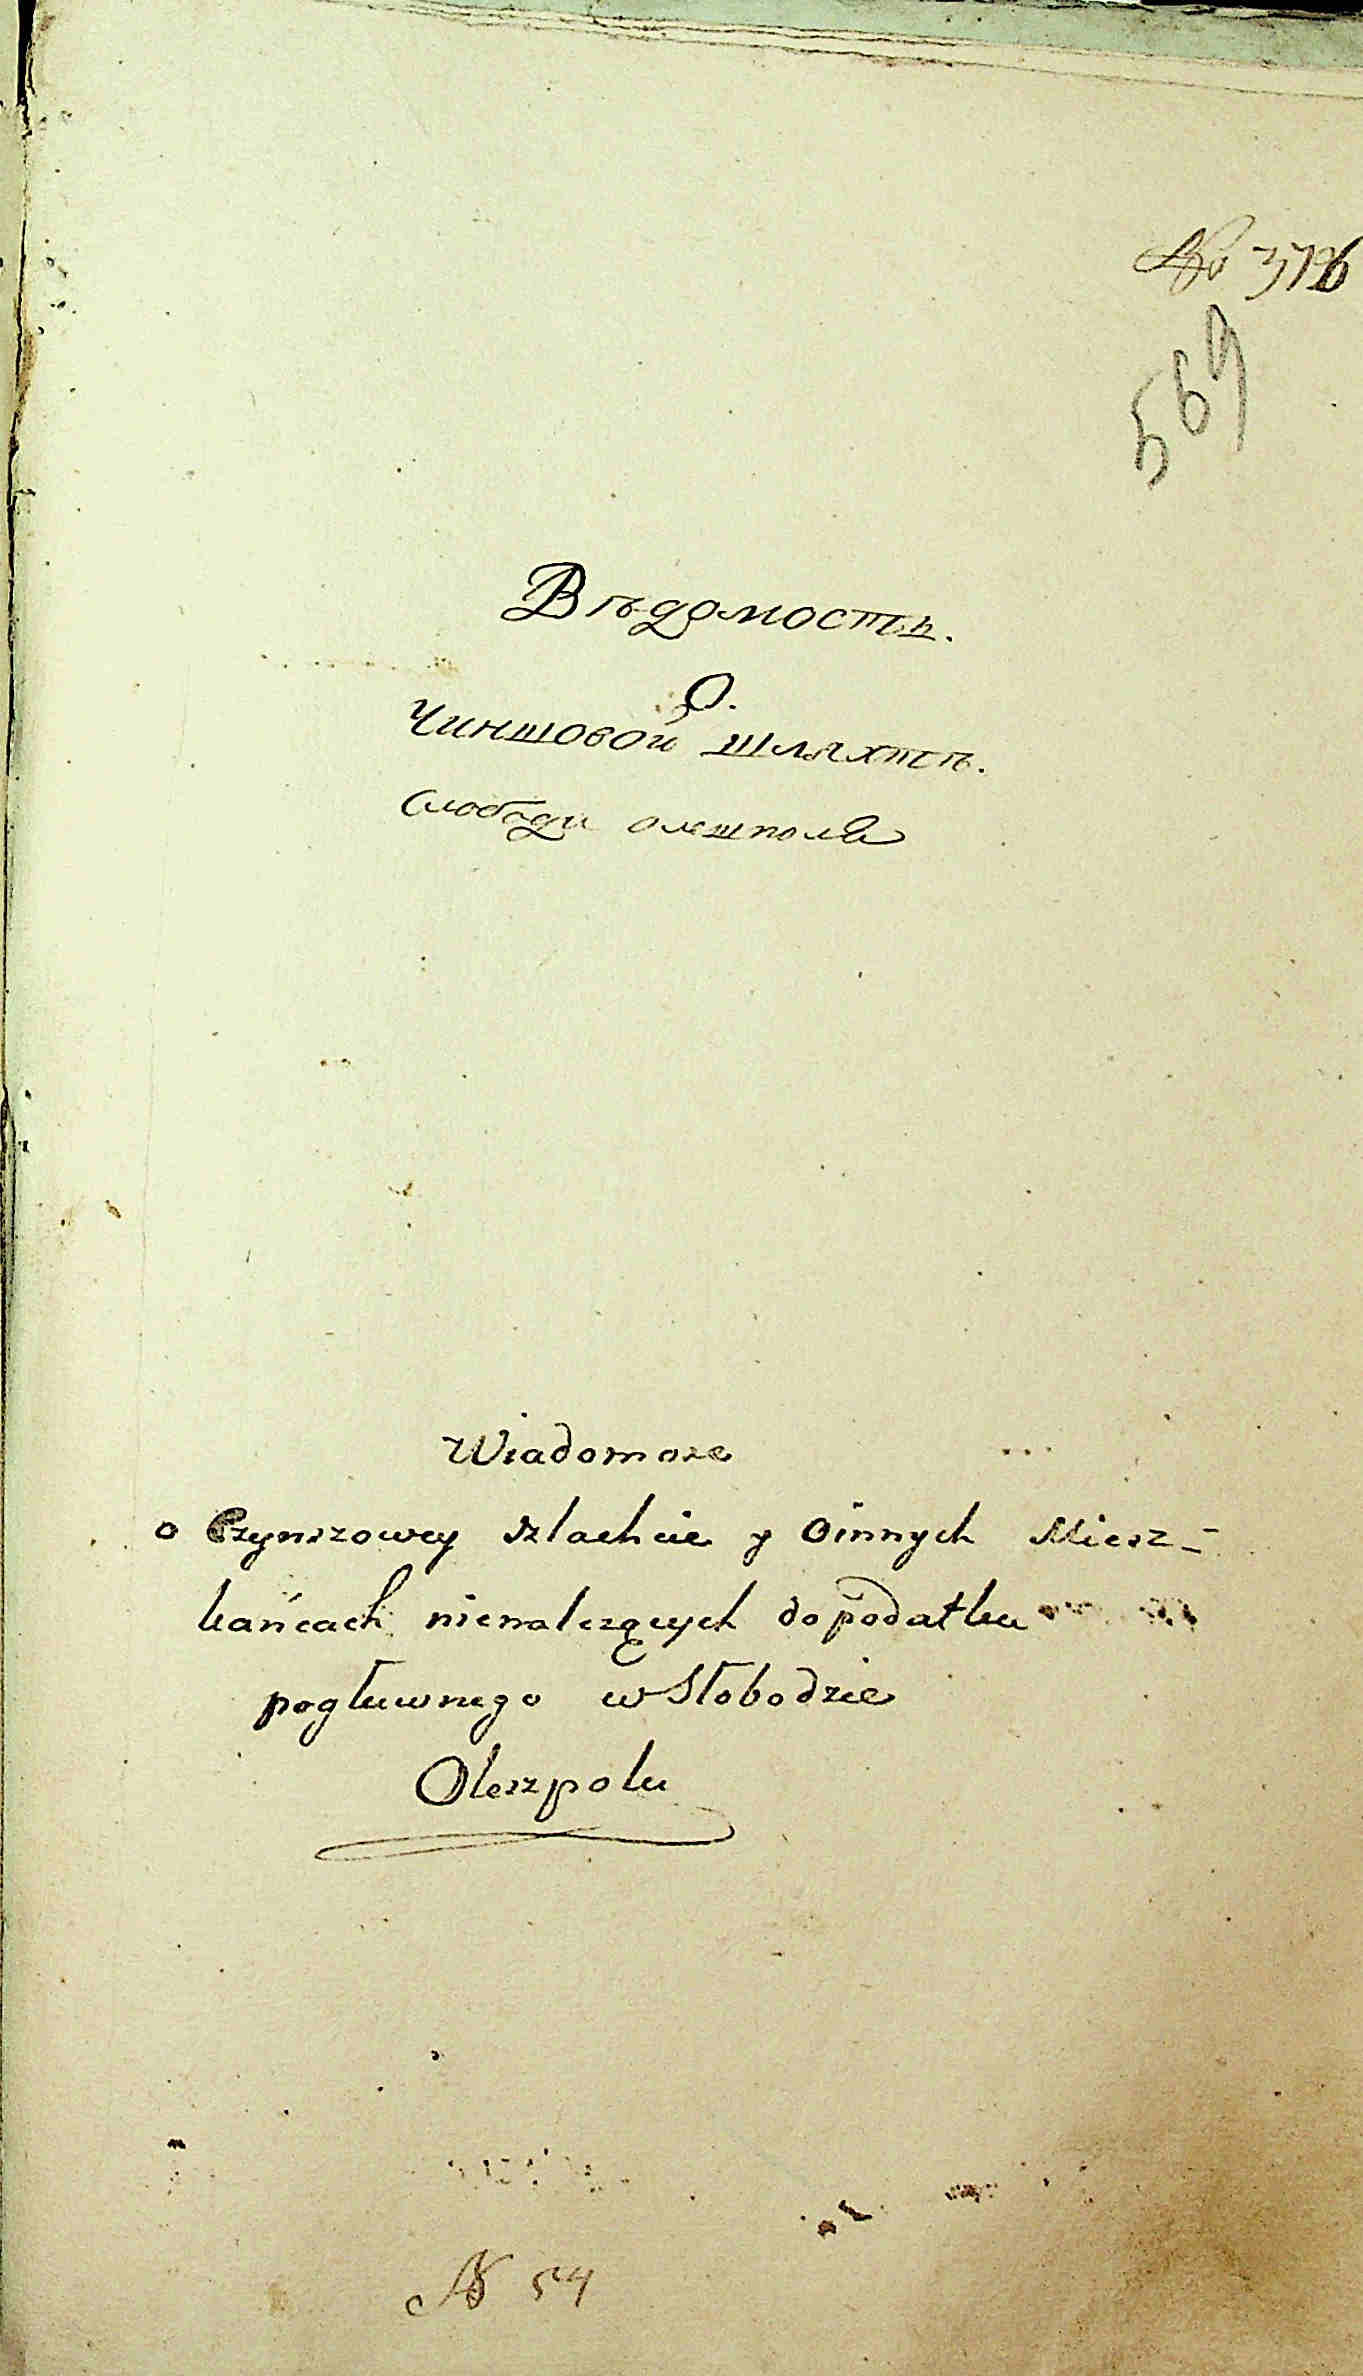 №
569
Вѣдомость.
О.
Чиншовой шляхтѣ.
Слободи олешполя
Wiadomosc
o Czynszowey szlachcie y Oinnych Miesz-
kańcach nienalezących do podatku
pogłuwnego w Słobodzie
Oleszpolu
№ 54